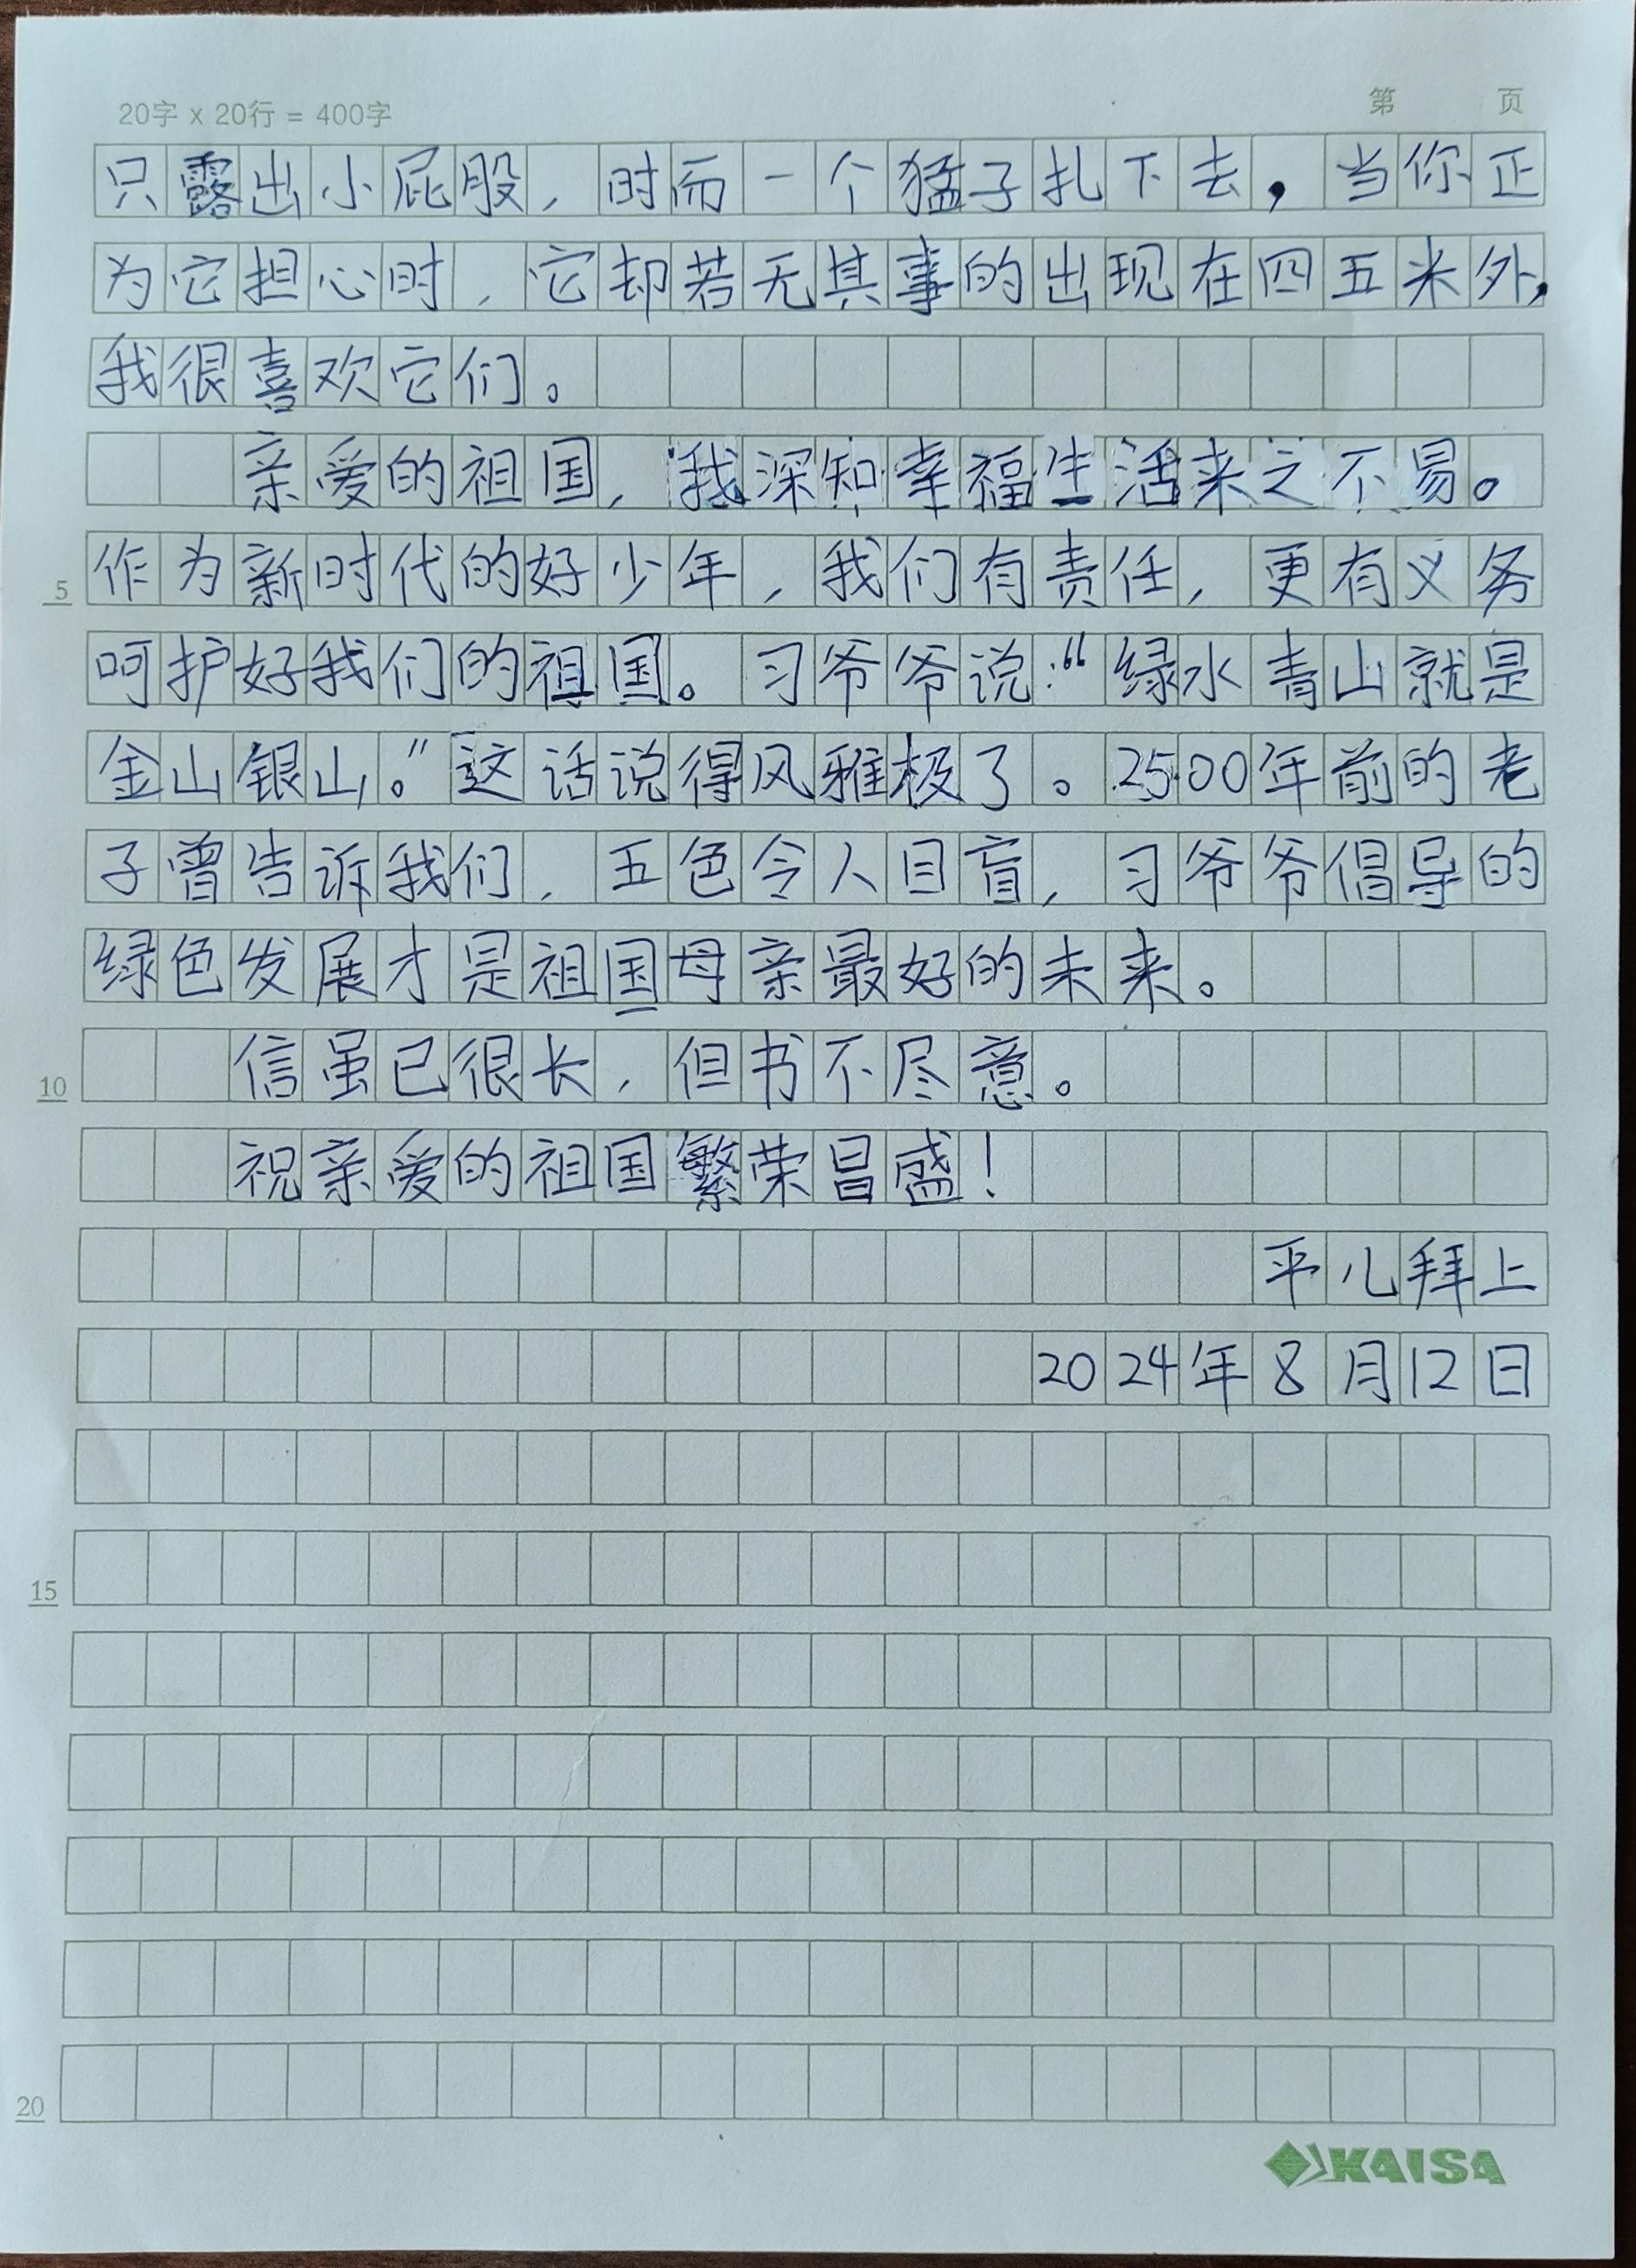 20字 x 20行 = 400字
第 页
只露出小屁股，时而一个猛子扎下去，当你正
为它担心时，它却若无其事的出现在四五米外，
我很喜欢它们。
亲爱的祖国，我深知幸福生活来之不易。
5
作为新时代的好少年，我们有责任，更有义务
呵护好我们的祖国。习爷爷说：“绿水青山就是
金山银山。”这话说得风雅极了。2500年前的老
子曾告诉我们，五色令人目盲，习爷爷倡导的
绿色发展才是祖国母亲最好的未来。
10
信虽已很长，但书不尽意。
祝亲爱的祖国繁荣昌盛！
平儿拜上
2024年8月12日
15
20
KAISA